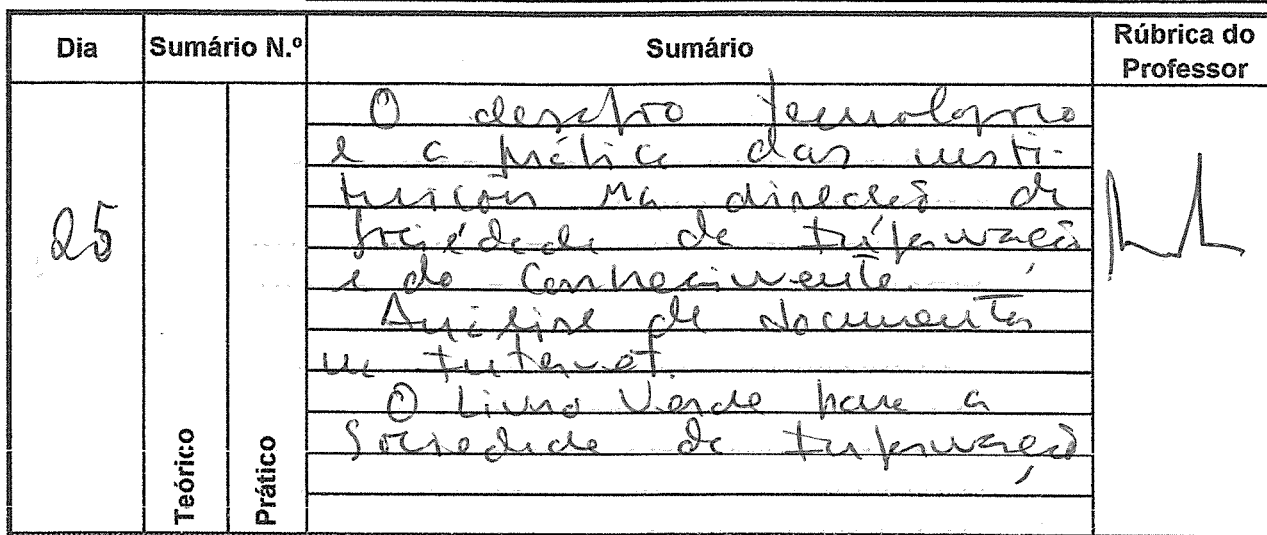 Dia Sumário N.º Sumário Rúbrica do Professor
25
Teórico
Prático
O desafio tecnologico
e a prática das insti-
tuicões na direcção da
Sociedade da Informação
e do Conhecimento.
Análise de documentos
na Internet.
O Livro Verde para a
Sociedade da Informação